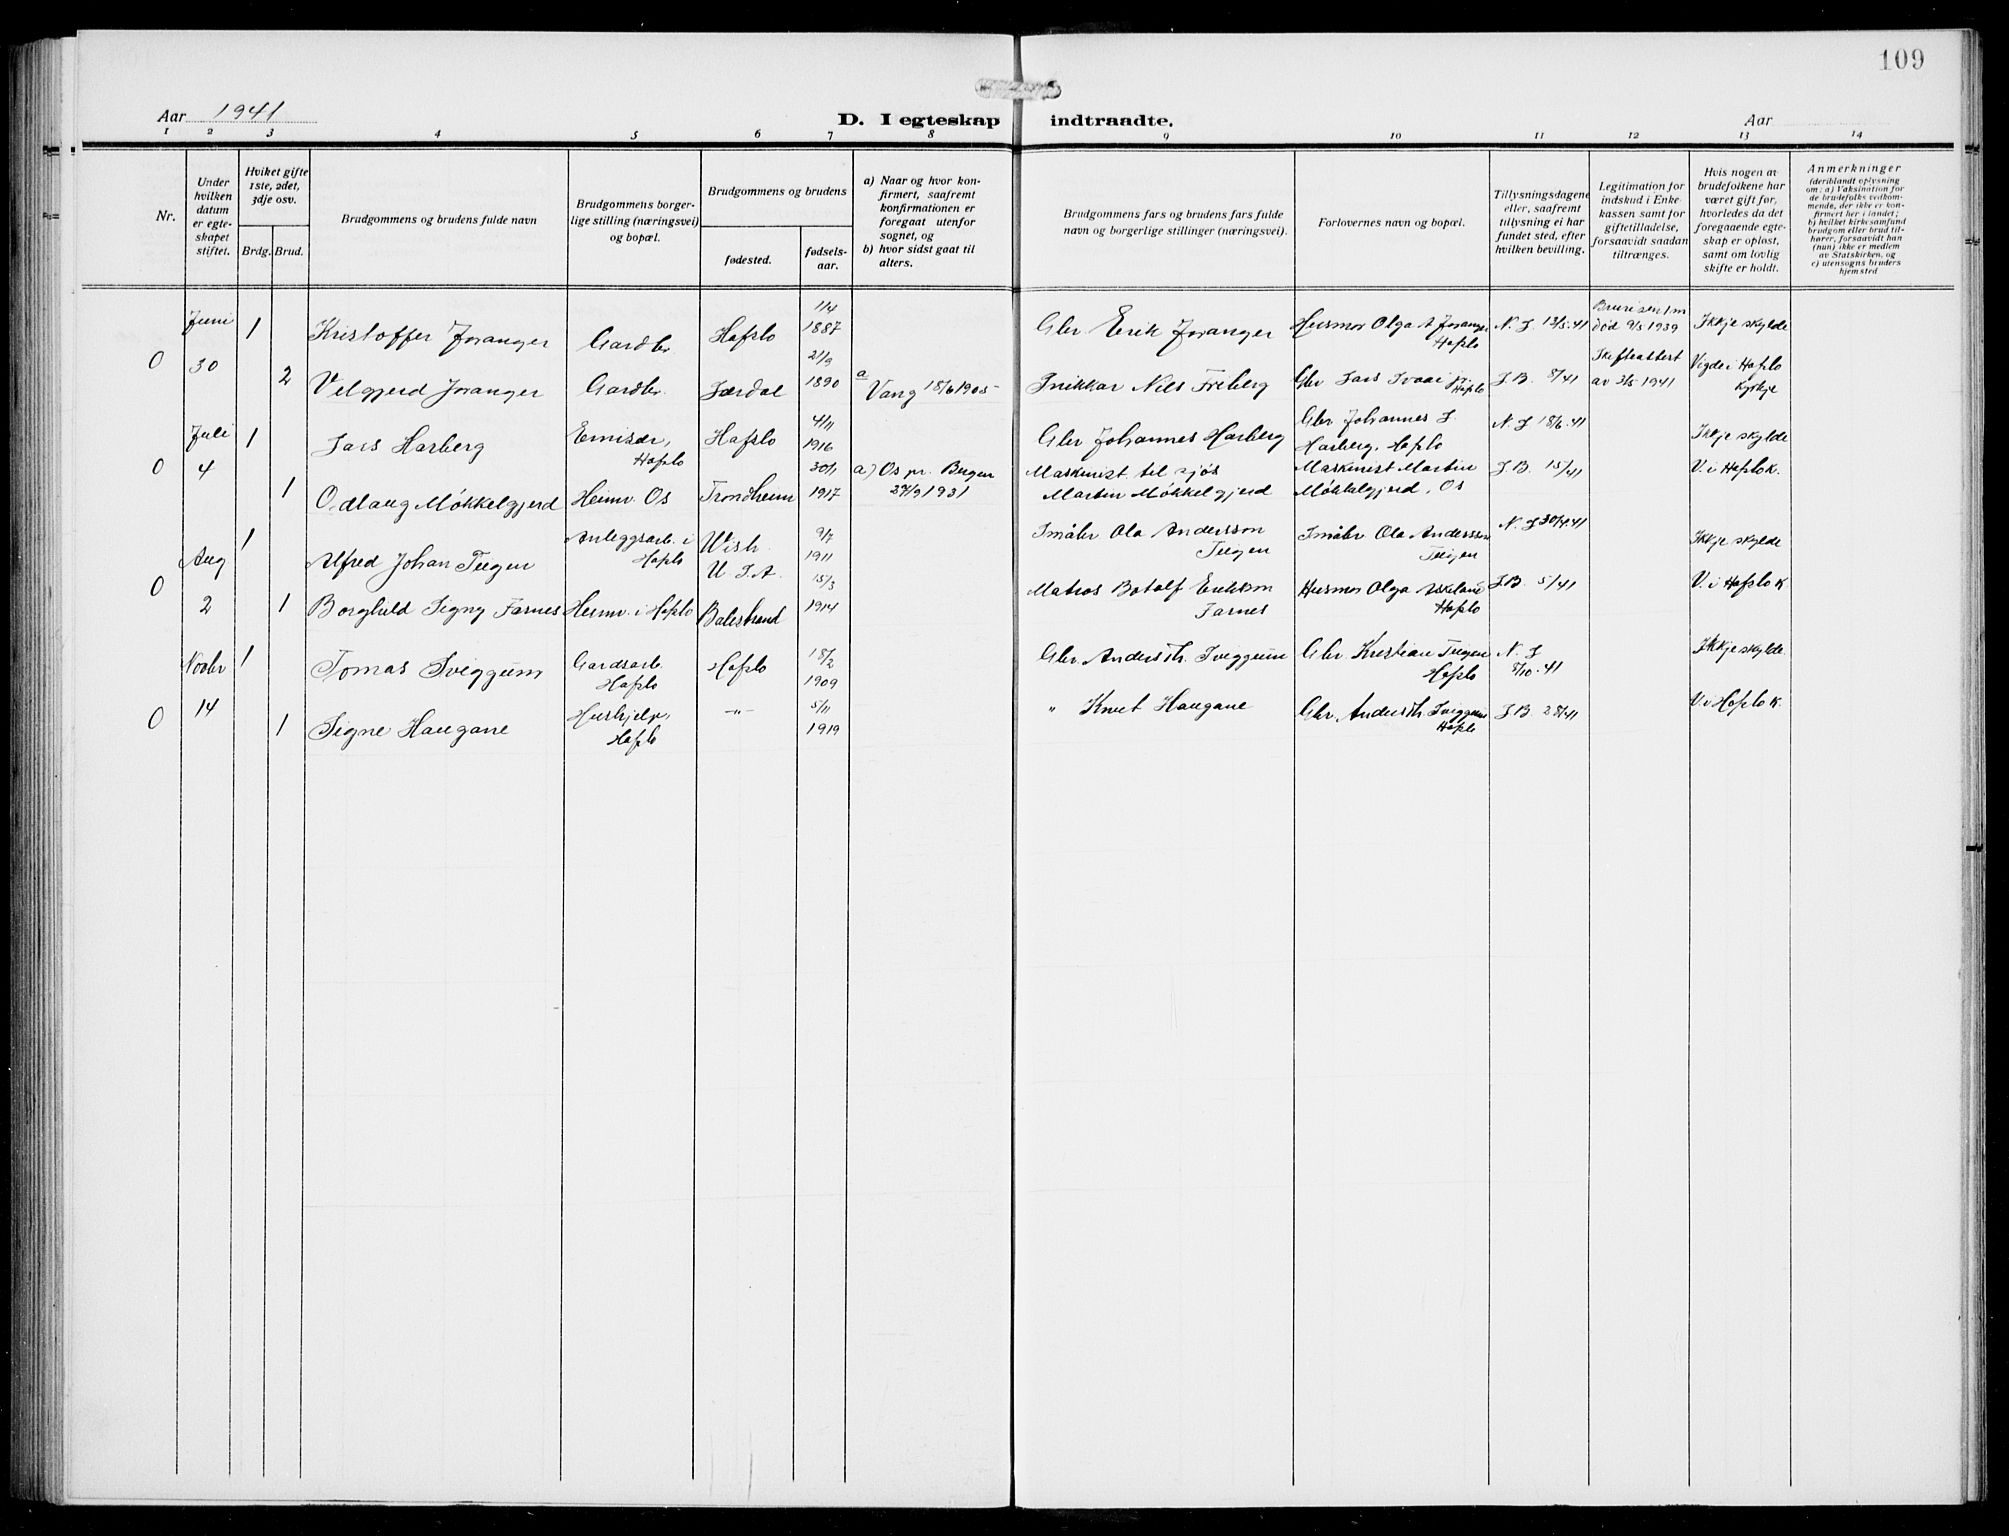 109
Aar 1941
D. I egteskap indtraadte.
Aar
1 2 3 4 5 6 7 8 9 10 11 12 13 14
Nr.
Under hvilken datum er egteskapet stiftet.
Hviket gifte 1ste, 2det, 3dje osv.
Brdg. Brud.
Brudgommens og brudens fulde navn
Brudgommens borgerlige stilling (næringsvei) og bopæl.
Brudgommens og brudens
fødested.
fødselsaar.
a) Naar og hvor konfirmert, saafremt konfirmationen er foregaat utenfor sognet, og
b) hvor sidst gaat til alters.
Brudgommens fars og brudens fars fulde navn og borgerlige stillinger (næringsvei).
Forlovernes navn og bopæl.
Tillysningsdagene eller, saafremt tillysning ei har fundet sted, efter hvilken bevilling.
Legitimation for indskud i Enkekassen samt for giftetilladelse, forsaavidt saadan tiltrænges.
Hvis nogen av brudefolkene har været gift før, hvorledes da det foregaaende egteskap er opløst, samt om lovlig skifte er holdt.
Anmerkninger
(deriblandt oplysning om: a) Vaksination for de brudefolks vedkommende, der ikke er konfirmert her i landet; b) hvilket kirkesamfund brudgom eller brud tilhører, forsaavidt han (hun) ikke er medlem av Statskirken, og c) utensogns bruders hjemsted
Juni 1 Kristoffer Joranger Gardbr. Hafslo 1/4 1887 Gbr Erik Joranger Husmor Olga A Joranger Hafslo N. J 13/5.41 død 9/5 1939 Ikkje skylde
0 30 2 Velgjerd Joranger Gardbr. Lærdal 21/9 1890 a Vang 18/6 1905 Snikkar Nils Friberg Gbr Lars Hafslo J.B. 8/41 Skifteattest av 3/5 1941 Vigde i Hafslo Kyrkje
Juli 1 Lars Harberg Emisær, Hafslo Hafslo 4/11 1916 Gbr Johannes Harberg Gbr Johannes L Harberg, Hafslo N. J 18/6.41 Ikkje skylde
0 4 1 Odlaug Møkkelgjerd Heimv. Os Trondheim 30/1 1917 a) Os pr. Bergen 27/9 1931 Maskinist til sjøs Martin Møkkelgjerd Maskinist Martin Møkkelgjerd, Os J.B. 15/41 V. i Hafslo k.
Aug 1 Alfred Johan Teigen Anleggsarb. i Hafslo Wish. U.S.A. 9/7 1911 Småbr Ola Andersson Teigen Småbr Ola Andersson Teigen N. J 30/4.41 Ikkje skylde
0 2 1 Borghild Signy Farnes Heimv. i Hafslo Balestrand 15/3 1914 Matros Botolf Erikson Farnes Husmor Olga Hafslo J.B. 5/41 V. i Hafslo k
Novbr 1 Tomas Sviggum Gardsarb. Hafslo Hafslo 18/2 1909 Gbr Anders Th. Sviggum Gbr Kristian Teigen Hafslo N. J 8/10.41 Ikkje skylde.
0 14 1 Signe Haugane Hushjelp, Hafslo —"— 5/11 1919 " Knut Haugane Gbr. Anders Th. Sviggum Hafslo J.B. 28/41 V. i Hafslo k.